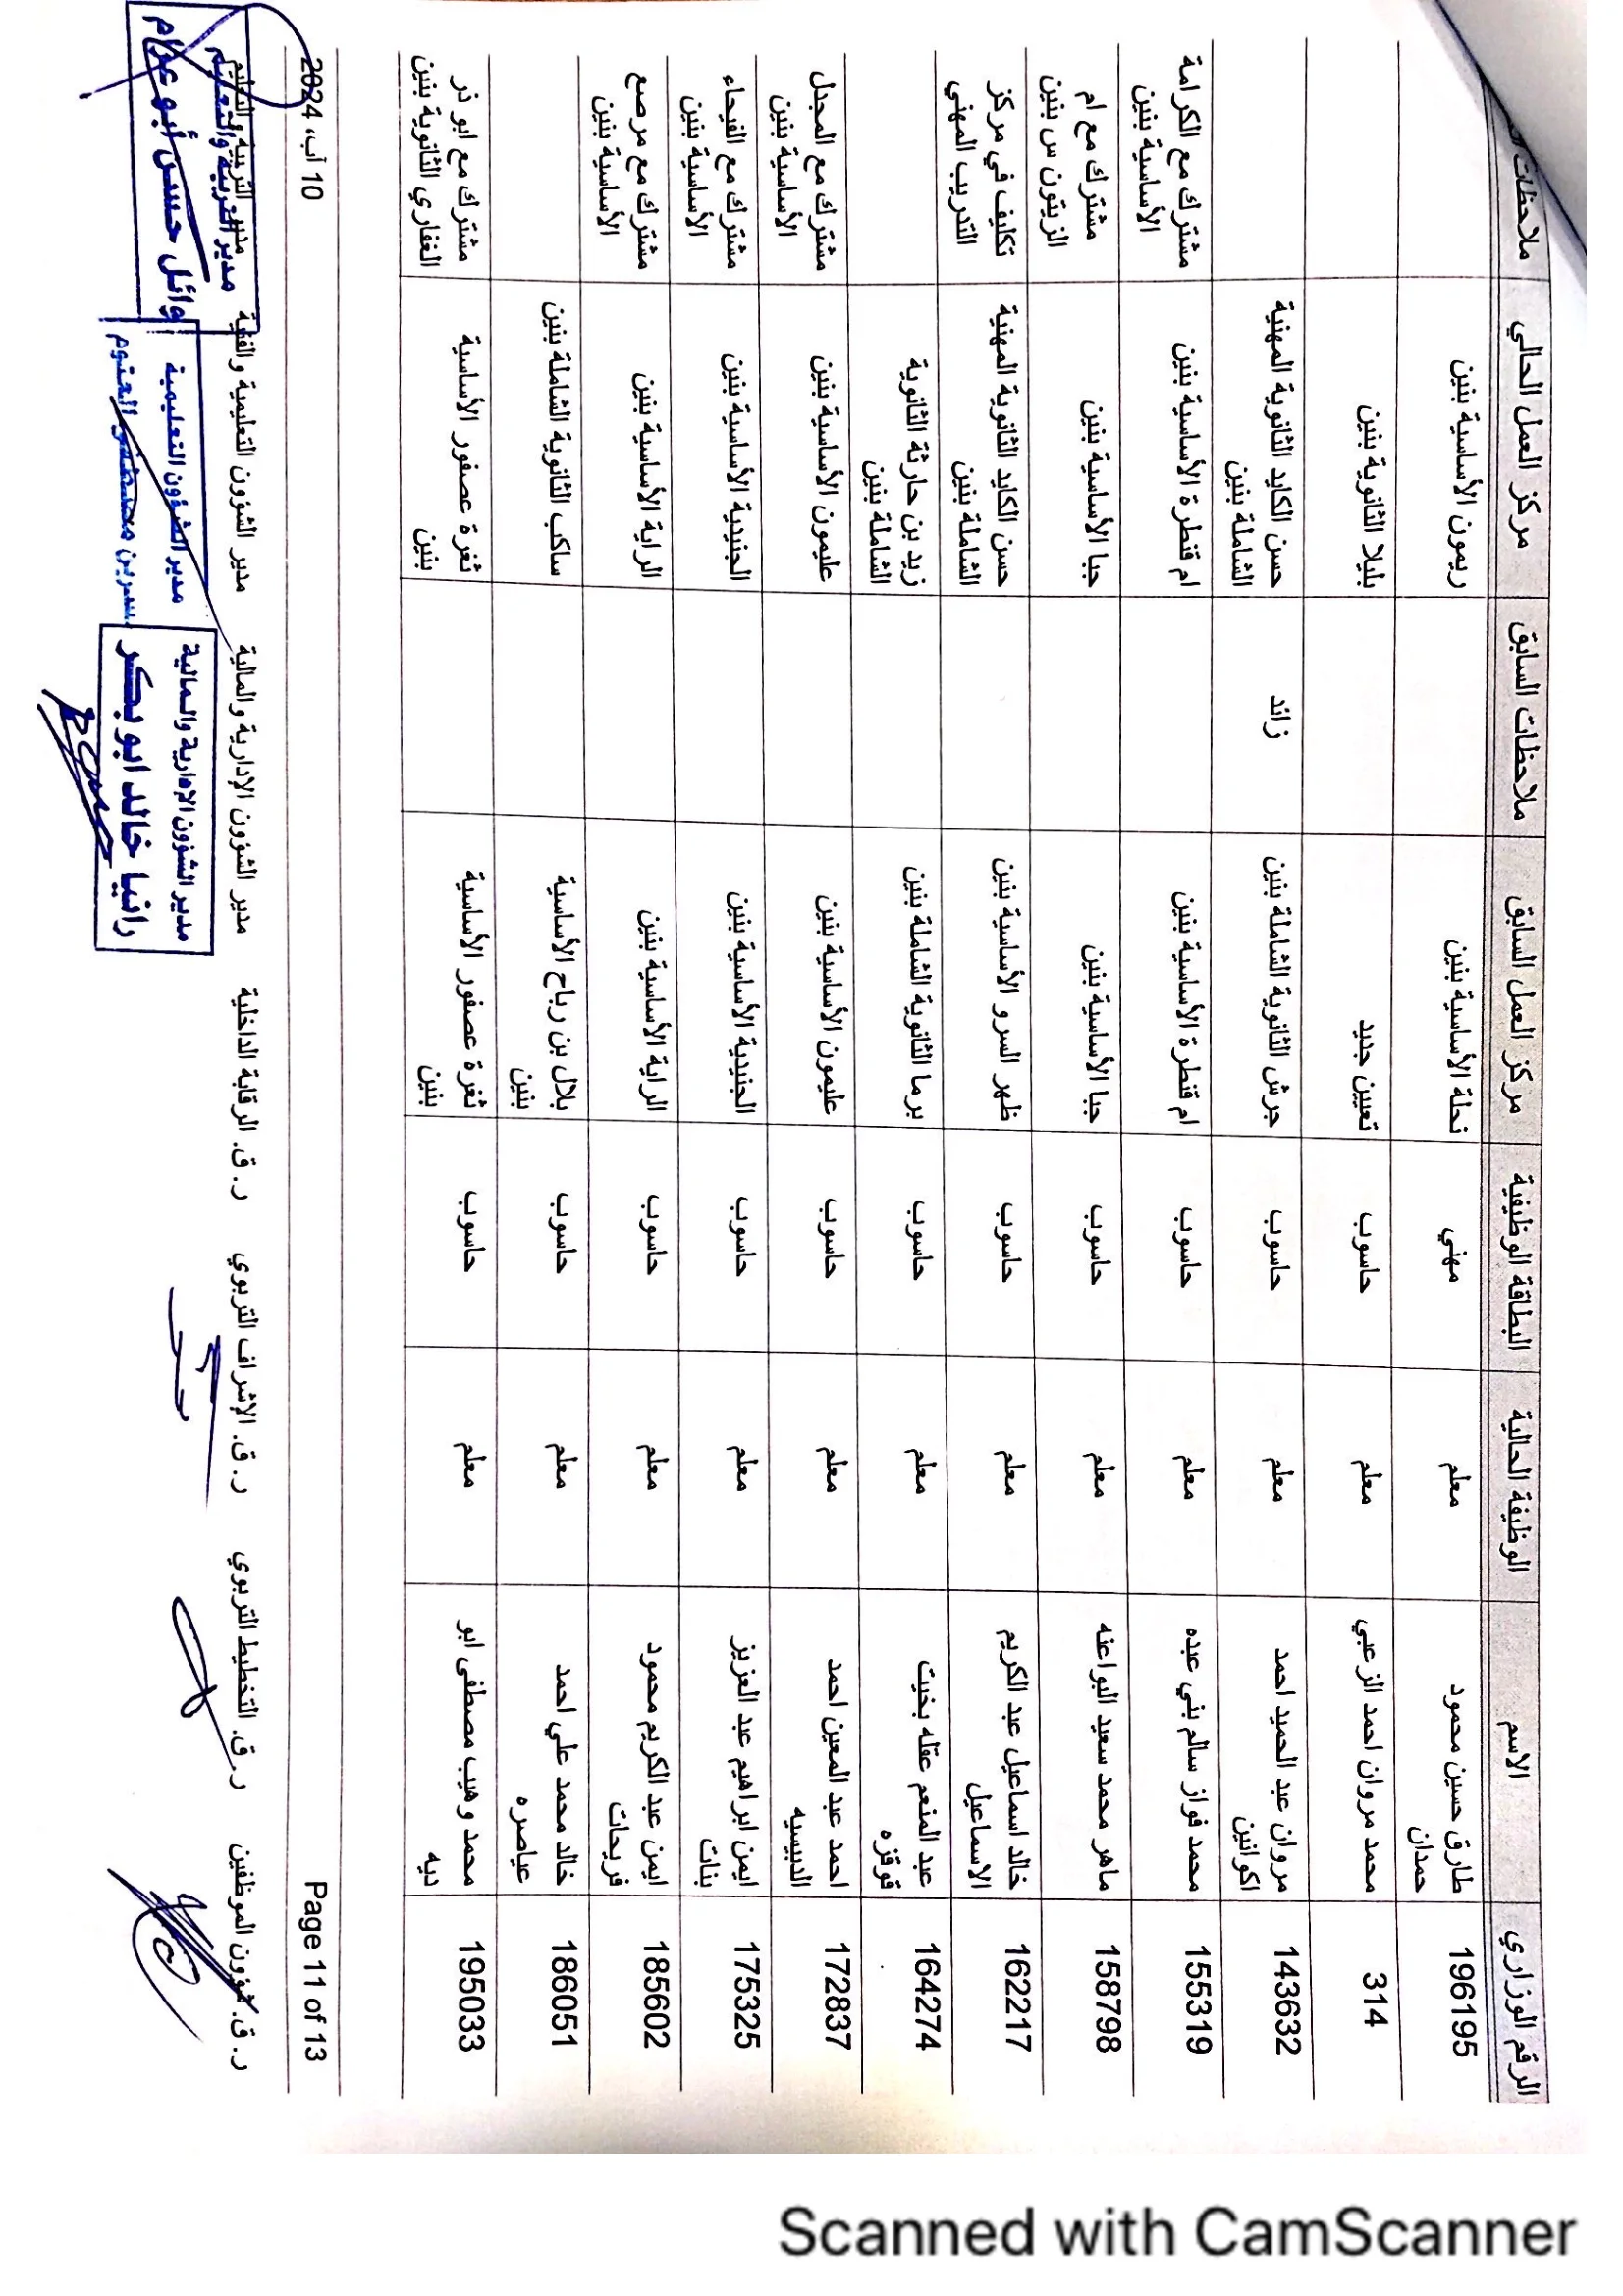 الرقم الوزاري الاسم الوظيفة الحالية البطاقة الوظيفية مركز العمل السابق ملاحظات السابق مركز العمل الحالي ملاحظات
196195 طارق حسين محمود معلم مهني نحلة الأساسية بنين ريمون الأساسية بنين
حمدان
314 محمد مروان احمد الزعبي معلم حاسوب تعيين جديد بليلا الثانوية بنين
143632 مروان عبد الحميد احمد معلم حاسوب جرش الثانوية الشاملة بنين زائد حسن الكايد الثانوية المهنية
اكوانين الشاملة بنين
155319 محمد فواز سالم بني عبده معلم حاسوب ام قنطرة الأساسية بنين ام قنطرة الأساسية بنين مشترك مع الكرامة
الأساسية بنين
158798 ماهر محمد سعيد البواعنه معلم حاسوب جبا الأساسية بنين جبا الأساسية بنين مشترك مع ام
الزيتون س بنين
162217 خالد اسماعيل عبد الكريم معلم حاسوب ظهر السرو الأساسية بنين حسن الكايد الثانوية المهنية تكليف في مركز
الاسماعيل الشاملة بنين التدريب المهني
164274 عبد المنعم عقله بخيت معلم حاسوب برما الثانوية الشاملة بنين زيد بن حارثة الثانوية
قوقزه الشاملة بنين
172837 احمد عبد المعين احمد معلم حاسوب عليمون الأساسية بنين عليمون الأساسية بنين مشترك مع المجدل
الدبيسيه الأساسية بنين
175325 ايمن ابراهيم عبد العزيز معلم حاسوب الجنيدية الأساسية بنين الجنيدية الأساسية بنين مشترك مع الفيحاء
بنات الأساسية بنين
185602 ايمن عبد الكريم محمود معلم حاسوب الراية الأساسية بنين الراية الأساسية بنين مشترك مع مرصع
فريحات الأساسية بنين
186051 خالد محمد علي احمد معلم حاسوب بلال بن رباح الأساسية ساكب الثانوية الشاملة بنين
عياصره بنين
195033 محمد وهيب مصطفى ابو معلم حاسوب ثغرة عصفور الأساسية ثغرة عصفور الأساسية مشترك مع ابو ذر
ديه بنين بنين الغفاري الثانوية بنين
Page 11 of 13 10 آب، 2024
ر. ق. شؤون الموظفين ر. ق. التخطيط التربوي ر. ق. الإشراف التربوي ر. ق. الرقابة الداخلية مدير الشؤون الإدارية والمالية مدير الشؤون التعليمية والفنية مدير التربية والتعليم
مدير الشؤون الادارية والمالية
رانيا خالد ابو بكر
مدير الشؤون التعليمية
العتوم
مدير التربية والتعليم
وائل حسن أبو عزام
Scanned with CamScanner